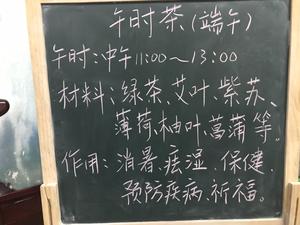 午时茶(端午)
午时:中午11:00~13:00
材料:绿茶、艾叶、紫苏、
薄荷、柚叶、菖蒲等。
作用:消暑、祛湿、保健、
预防疾病、祈福。